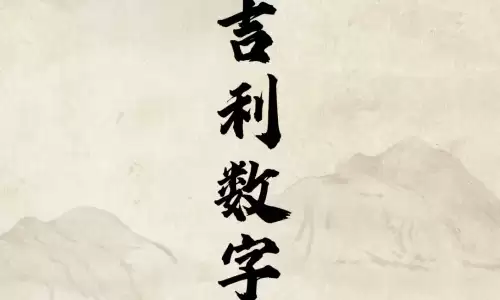 吉利数字